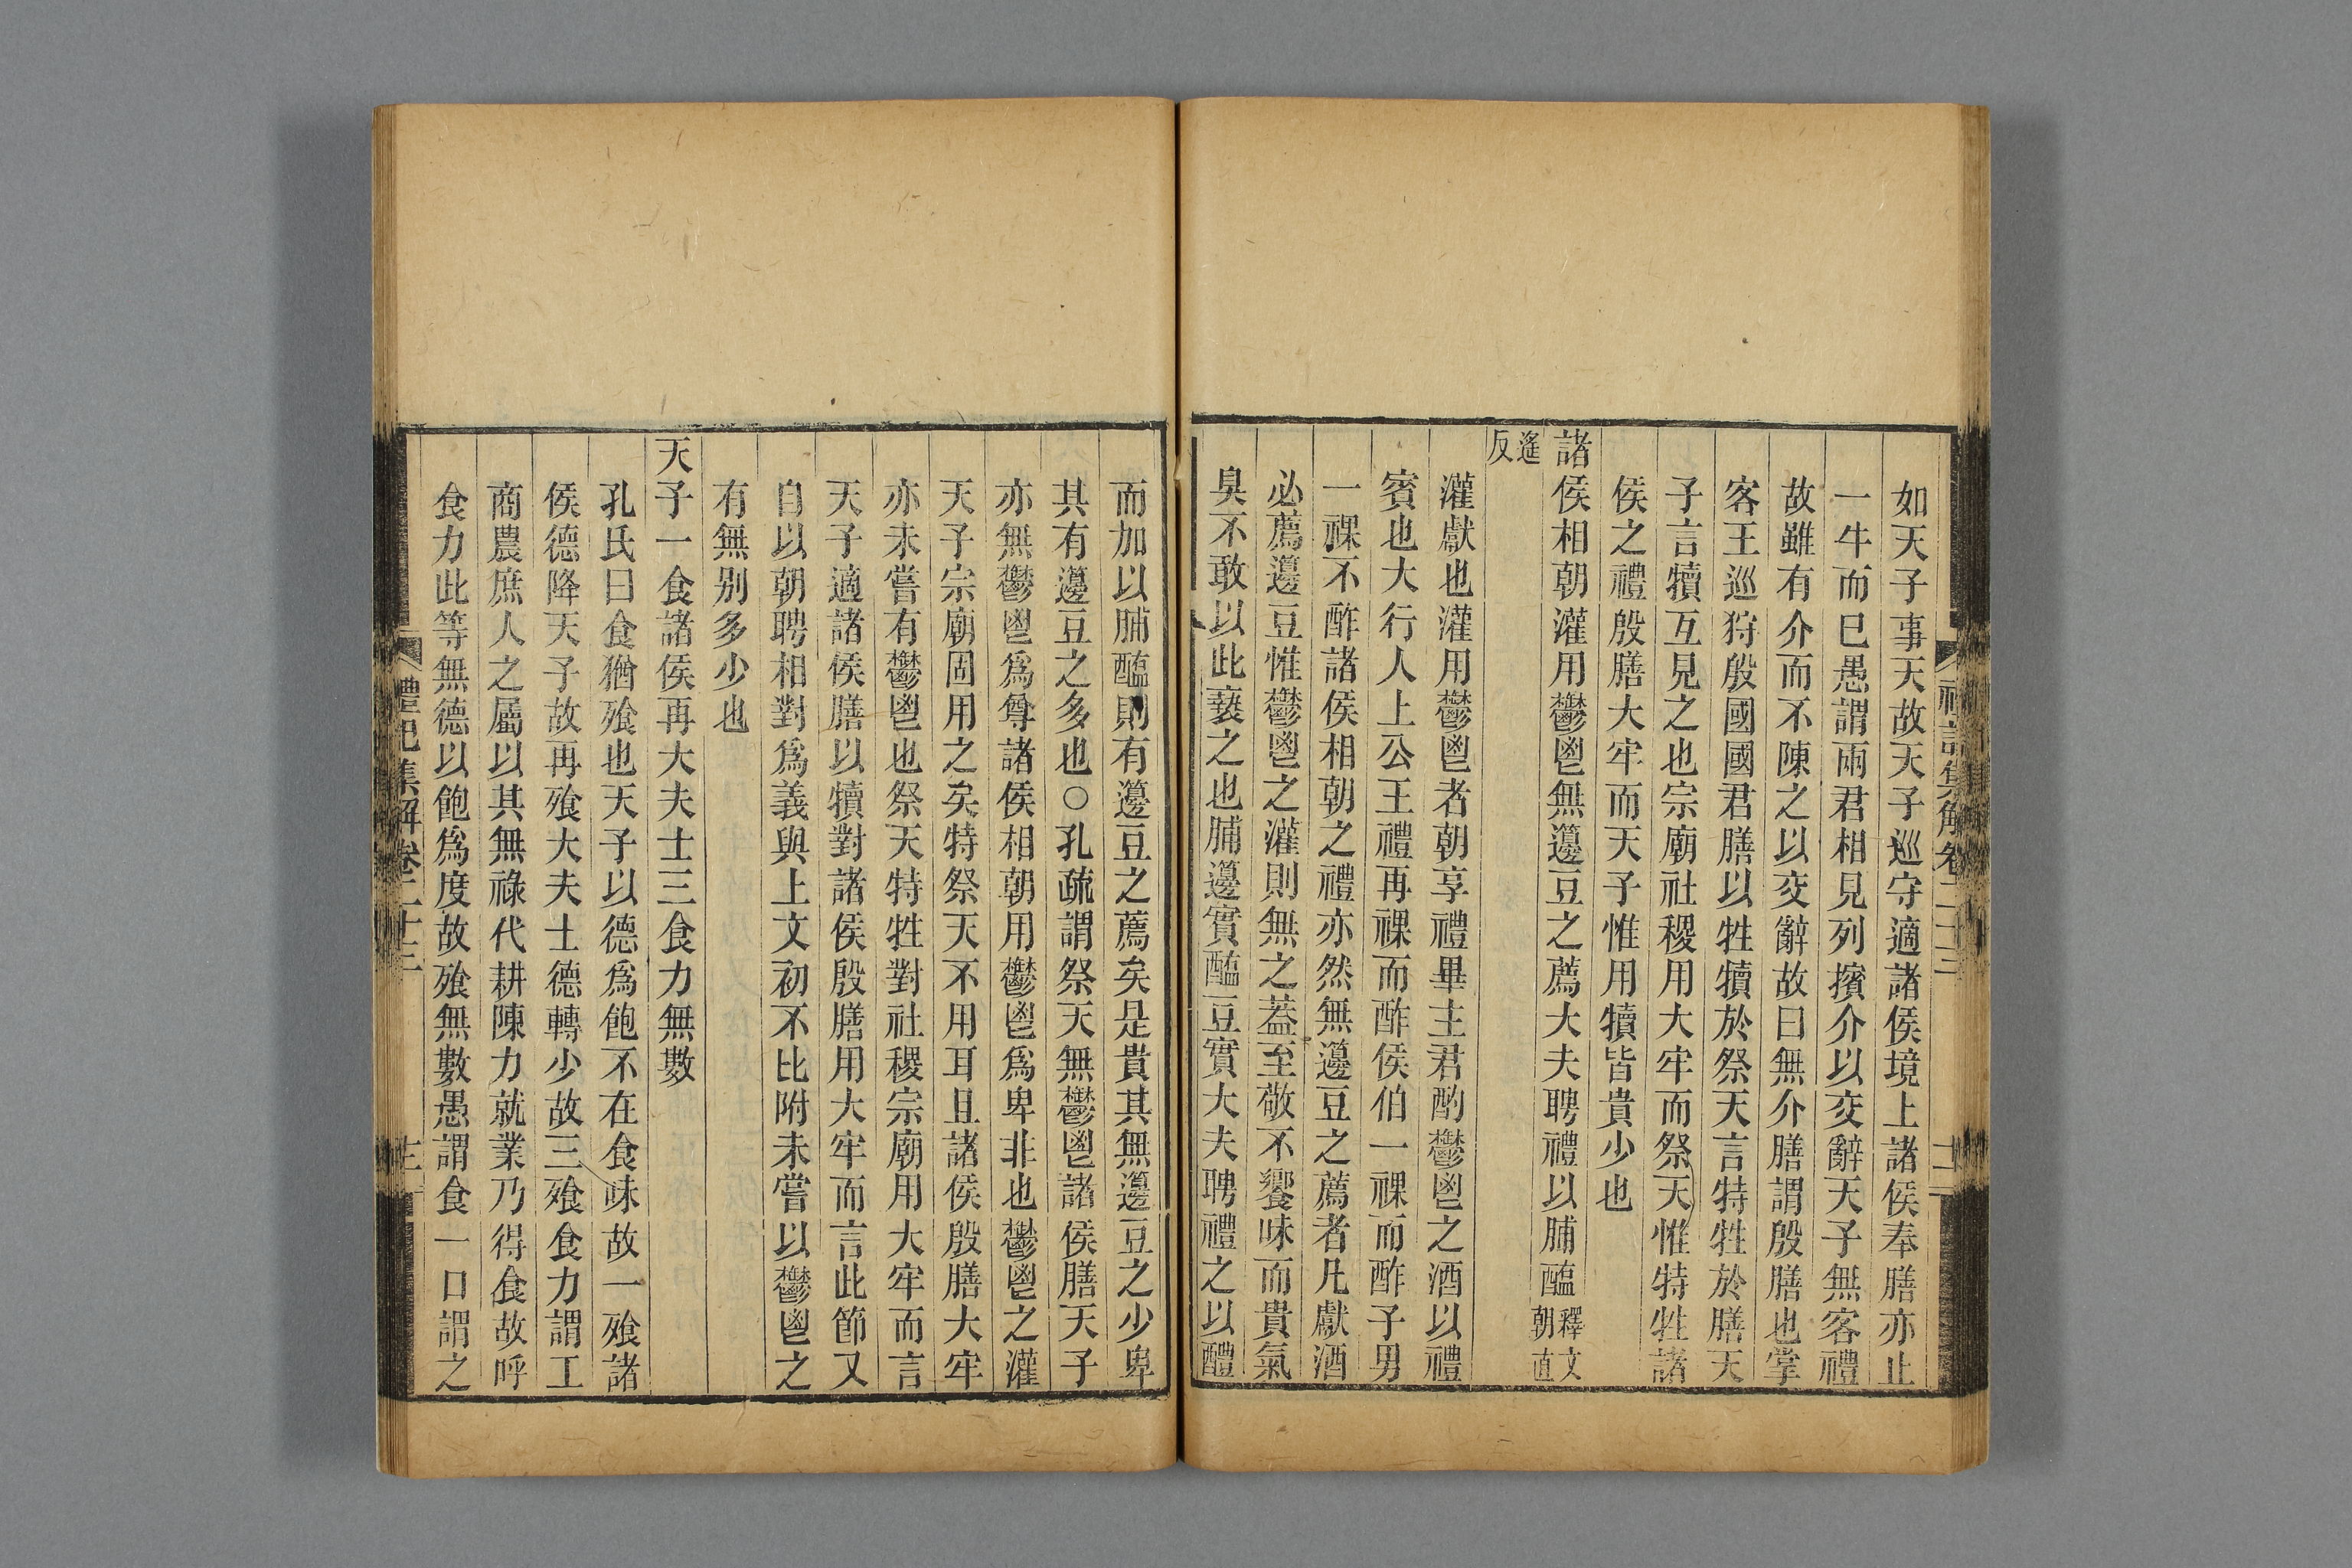 如天子事天故天子巡守適諸侯境上諸侯奉膳亦止
一牛而巳愚謂兩君相見列擯介以交辭天子無客禮
故雖有介而不陳之以交辭故曰無介膳謂殷膳也掌
客王巡狩殷國國君膳以牲犢於祭天言特牲於膳天
子言犢互見之也宗廟社稷用大牢而祭天惟特牲諸
侯之禮殷膳大牢而天子惟用犢皆貴少也
諸侯相朝灌用鬱鬯無籩豆之薦大夫聘禮以脯醢釋文朝直
遙反
灌獻也灌用鬱鬯者朝享禮畢主君酌鬱鬯之酒以禮
賓也大行人上公王禮再祼而酢侯伯一祼而酢子男
一祼不酢諸侯相朝之禮亦然無籩豆之薦者凡獻酒
必薦籩豆惟鬱鬯之灌則無之蓋至敬不饗味而貴氣
臭不敢以此䙝之也脯籩實醢豆實大夫聘禮之以醴
而加以脯醢則有籩豆之薦矣是貴其無籩豆之少卑
其有籩豆之多也○孔疏謂祭天無鬱鬯諸侯膳天子
亦無鬱鬯爲尊諸侯相朝用鬱鬯爲卑非也鬱鬯之灌
天子宗廟固用之矣特祭天不用耳且諸侯殷膳大牢
亦未嘗有鬱鬯也祭天特牲對社稷宗廟用大牢而言
天子適諸侯膳以犢對諸侯殷膳用大牢而言此節又
自以朝聘相對爲義與上文初不比附未嘗以鬱鬯之
有無別多少也
天子一食諸侯再大夫士三食力無數
孔氏曰食猶飱也天子以德爲飽不在食味故一飱諸
侯德降天子故再飱大夫士德轉少故三飱食力謂工
商農庶人之屬以其無祿代耕陳力就業乃得食故呼
食力此等無德以飽爲度故飱無數愚謂食一口謂之
禮記集解卷二十三